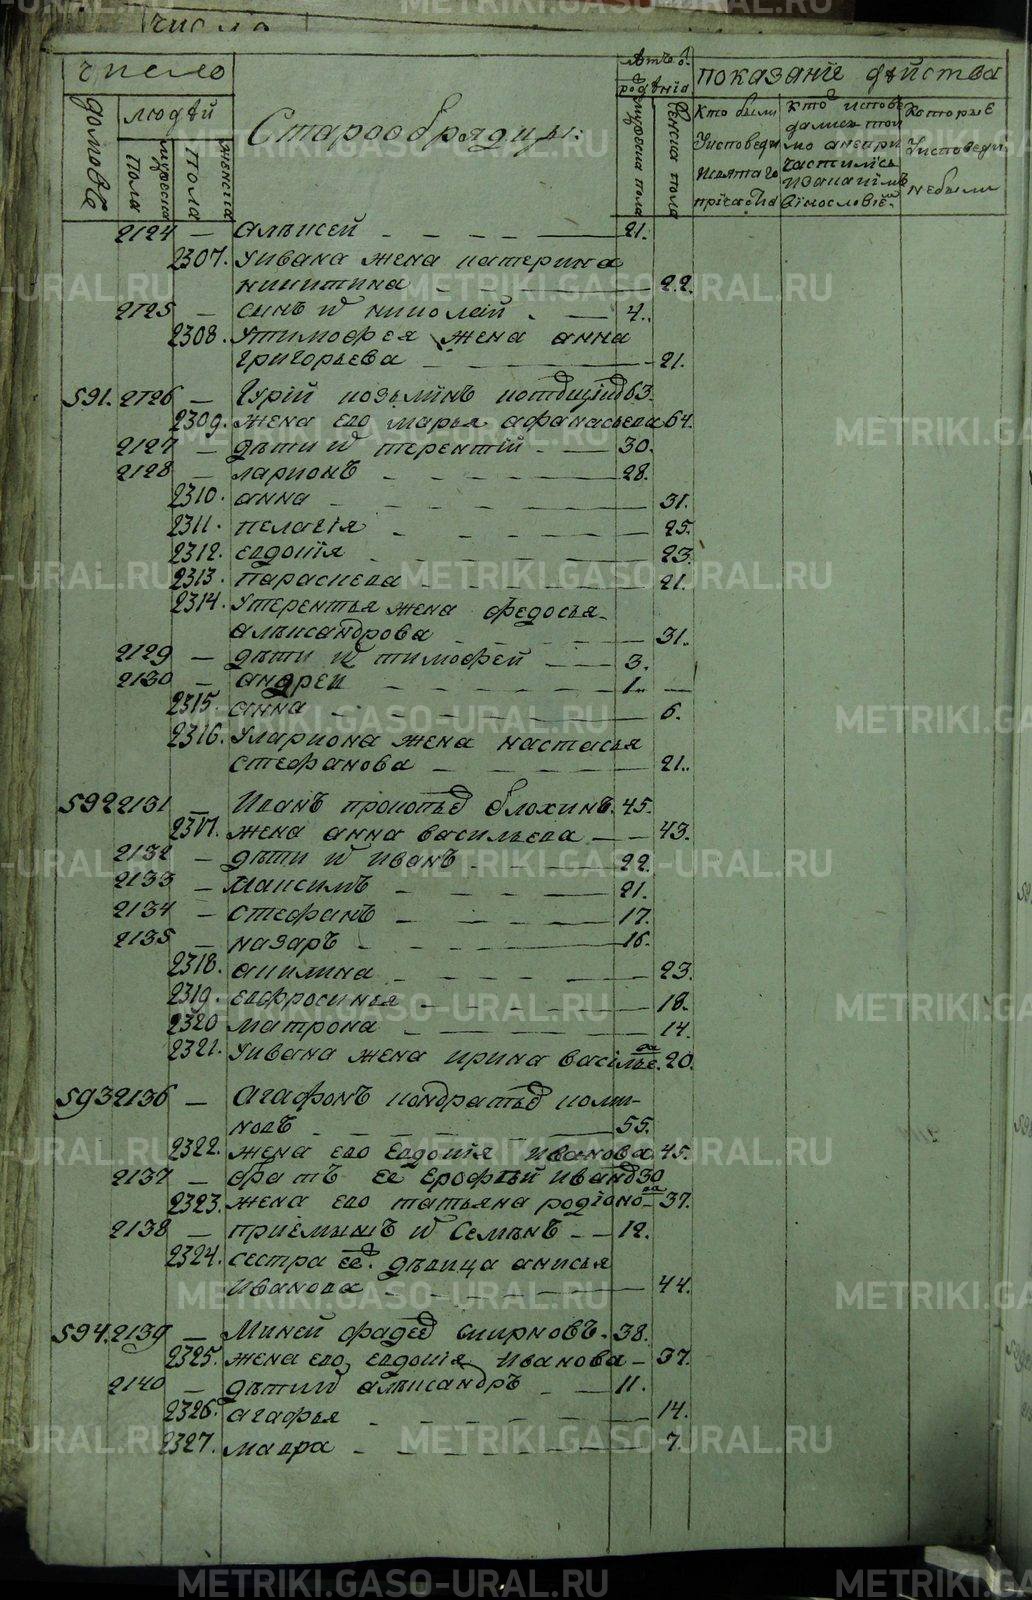 число
число
домовъ
людей
мужеска пола
женска пола
Старообрядцы:
лѣтъ ѿ рожденія
мужеска пола
женска пола
показаніе дѣйства
Кто были Уисповеди Исвятаго причастія
кто исповедались токмо анепричастились
Которые Уисповеди небыли
2124 — алѣксей — 21.
2307. Уивана жена катерина
никитина — 22.
2125 — сынъ иⷯ николай — 4.
2308. Утимофея жена анна
григорьева — 21.
591. 2126 — Гурій козьминъ 63.
2309. жена его марья афанасьева 64.
2127 — дѣти иⷯ терентій — 30.
2128 — ларионъ — 28.
2310. анна — 31.
2311. пелагія — 25.
2312. евдокія — 23.
2313. параскева — 21.
2314. Утерентья жена федосья
алѣксандрова — 31.
2129 — дѣти иⷯ тимофей — 3.
2130 — андреи — 1. —
2315. анна — 6.
2316. Улариона жена настасья
стефанова — 21.
592 2131 — Иванъ прокопьеⷡ блохинъ. 45.
2317. жена анна васильева — 43.
2132 — дѣти иⷯ иванъ — 22.
2133 — максимъ — 21.
2134 — стефанъ — 17.
2135 — назаръ — 16.
2318. акилина — 23.
2319. евфросинья — 18.
2320 матрона — 14.
2321. Уивана жена ирина васільеⷡа. 20.
593 2136 — Агафонъ кондратьеⷡ
новъ — 55.
2322. жена его евдокія Иванова 45.
2137 — братъ ее Ерофѣй иваноⷡ 30
2323. жена его татьяна родіоноⷡа — 37.
2138 — приемышъ иⷯ Семѣнъ — 12.
2324. сестра ееⷤ. дѣвица анисья
Иванова — 44.
594. 2139 — Миней фадееⷡ смирновъ. 38.
2325. жена его, евдокія Иванова — 37.
2140 — дѣти иⷯ алѣксандръ — 11.
2326. агафья — 14.
2327. мавра — 7.
METRIKI.GASO-URAL.RU